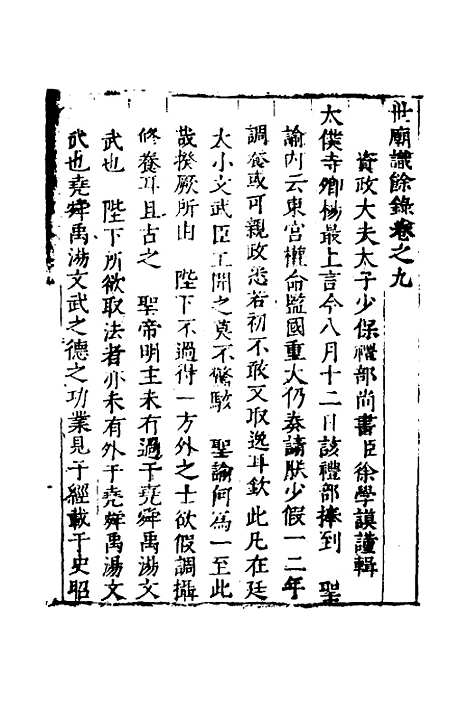 世廟識餘錄卷之九
資政大夫太子少保禮部尚書臣徐學謨謹輯
太僕寺卿楊最上言今八月十二日該禮部捧到　聖
諭內云東宮權命監國重大仍奏請朕少假一二年
調養或可親政悉若初不敢又取逸耳欽此凡在廷
大小文武臣工聞之莫不驚駭　聖諭何為一至此
哉揆厥所由　陛下不過得一方外之士欲假調攝
修養耳且古之　聖帝明主未有過于堯舜禹湯文
武也　陛下所欲取法者亦未有外于堯舜禹湯文
武也堯舜禹湯文武之德之功業見于經載于史昭